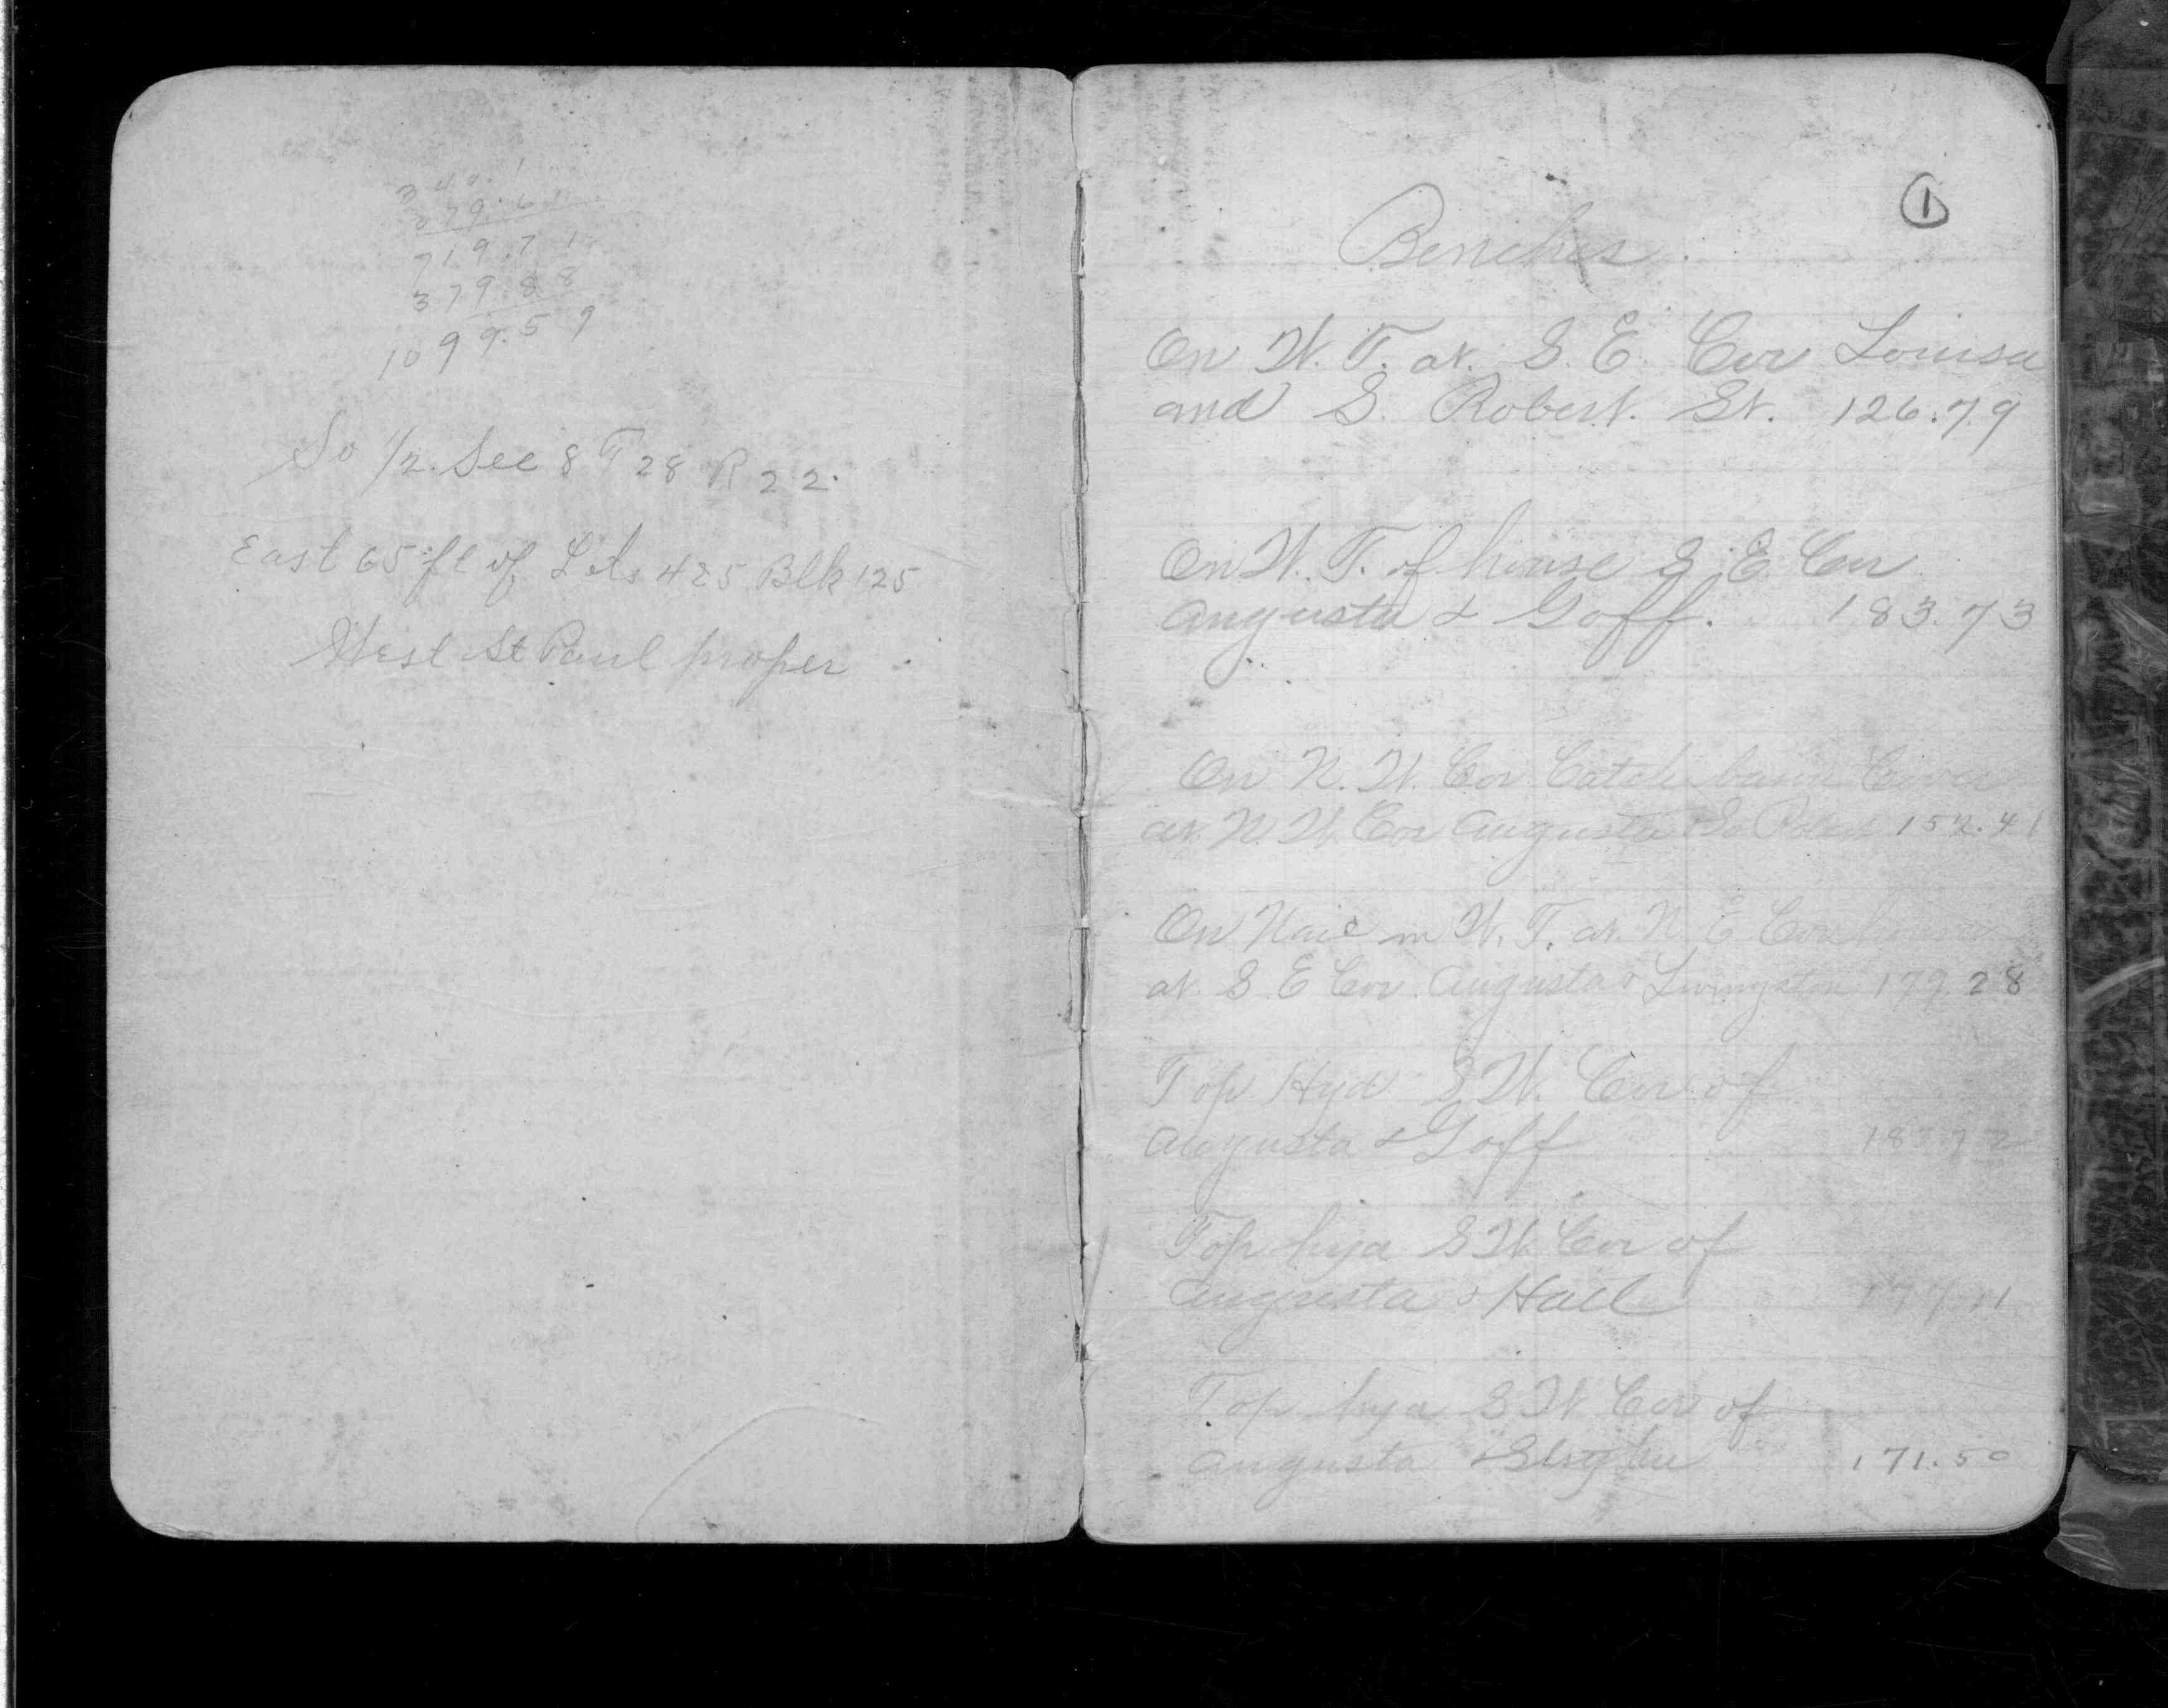 340.1
379.61
719.71
379.88
1099.59
So 1/2. Sec 8 T 28 R 22.
East 65 ft of Lots 4 & 5 Blk 125
West St Paul proper
1
Benches
On W. T. at. S. E. Cor Louisa
and S. Robert. St. 126.79
On W. T. of house S. E. Cor
Augusta & Goff. 183.73
On N. W. Cor Catch basin Cover
at. N. W. Cor Augusta & So Robert 152.41
On Nail in W. T. at. N. E Cor house
at. S. E Cor. Augusta & Livingston 179.28
Top Hyd. S. W. Cor. of
Augusta & Goff
Top hyd S W. Cor of
Augusta & Hall 177.11
Top hyd S W Cor of
Augusta 171.50